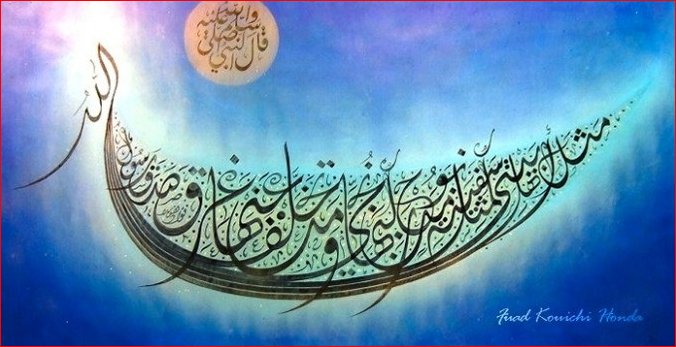 قال النبي صلى الله عليه وسلم
مثل أهل بيتي كمثل سفينة نوح من ركبها نجا ومن تخلف عنها غرق صدق رسول الله
Fuad Kouichi Honda